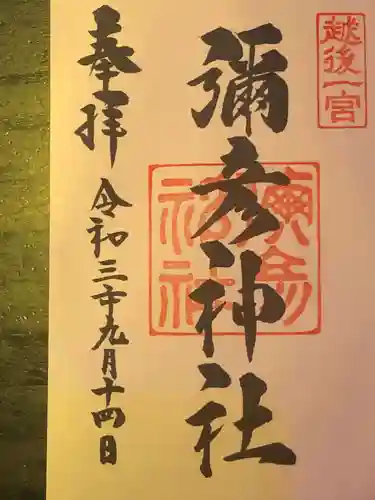 越後一宮
彌彦神社
奉拝
令和三年九月十四日